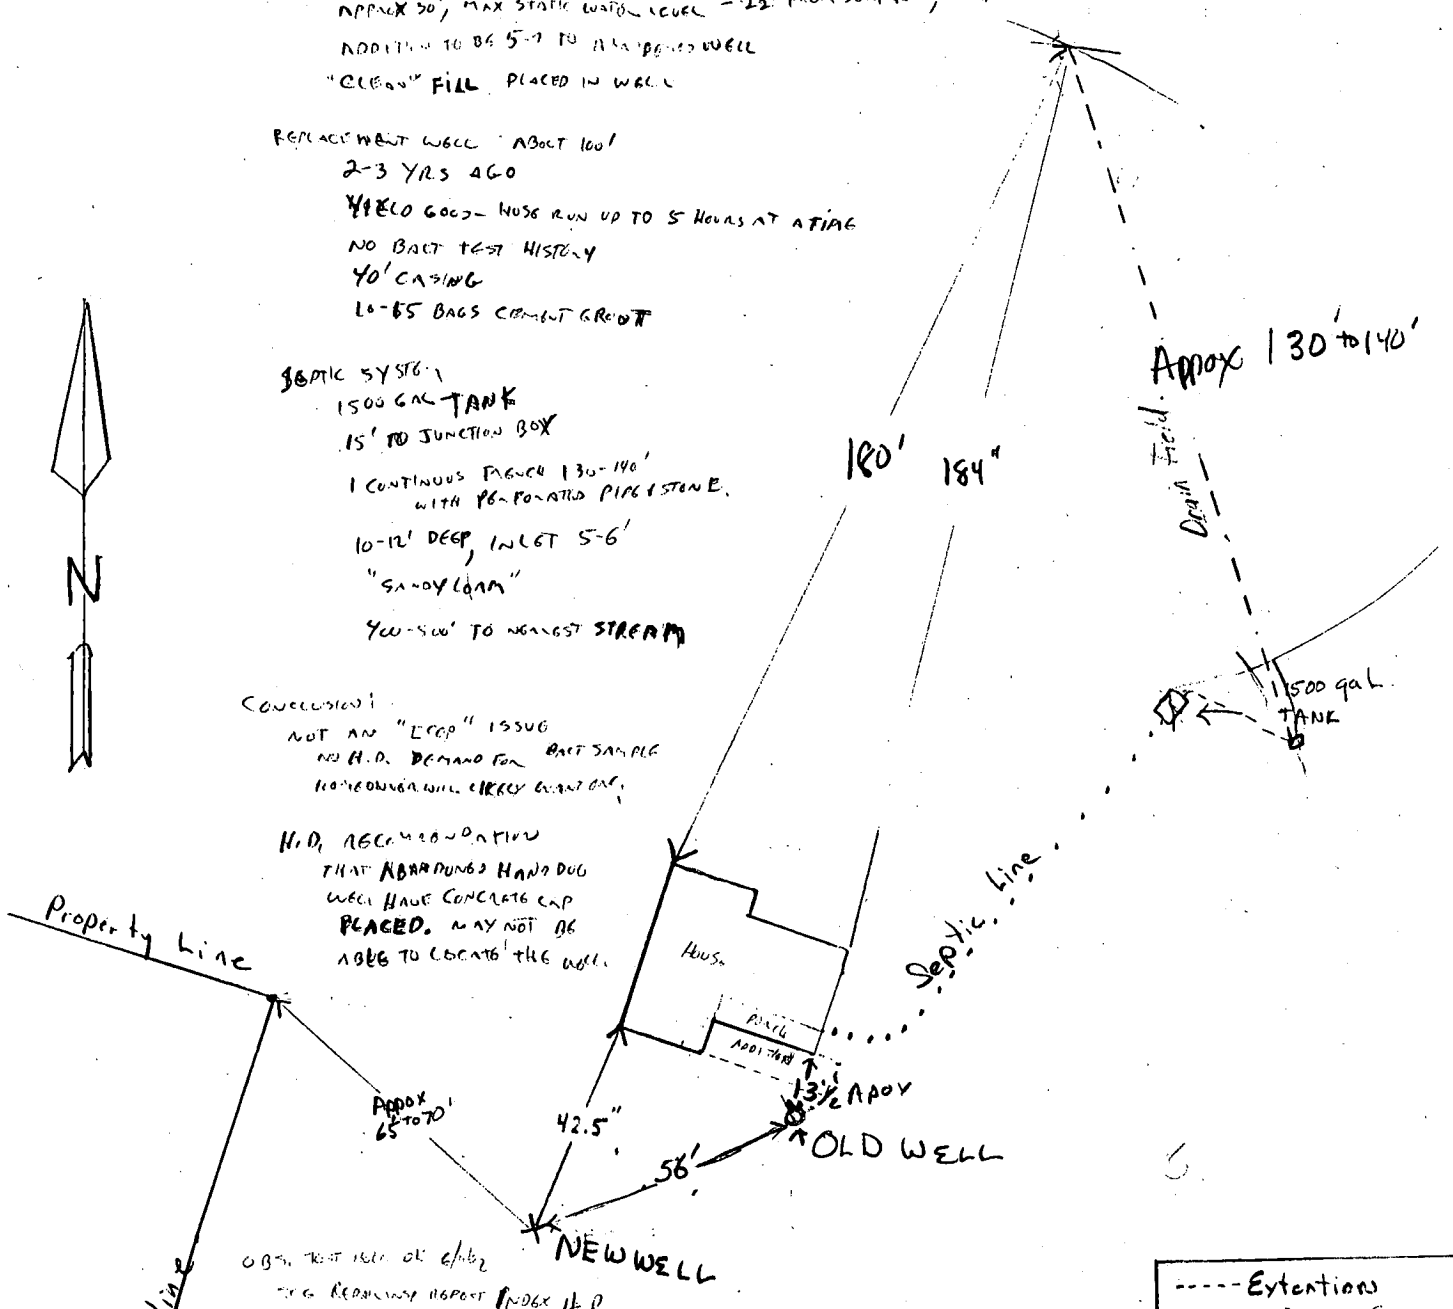 APPROX 30', MAX STATIC WATER LEVEL - 22' FROM
ADDITION TO BE 5-7 TO ABANDONED WELL
"CLEAN" FILL PLACED IN WELL
REPLACEMENT WELL ABOUT 100'
2-3 YRS AGO
YIELD GOOD - HOSE RUN UP TO 5 HOURS AT A TIME
NO BACT TEST HISTORY
40' CASING
10-15 BAGS CEMENT GROUT
SEPTIC SYSTEM
1500 GAL TANK
15' TO JUNCTION BOX
1 CONTINUOUS TRENCH 130-140'
WITH PERFORATED PIPE & STONE.
10-12' DEEP, INLET 5-6'
"SANDY LOAM"
400-500' TO NEAREST STREAM
CONCLUSION:
NOT AN ISSUE
NO H.D. DEMAND FOR BACT SAMPLE
HOMEOWNER WILL LIKELY WANT ONE.
H.D. RECOMMENDATION
THAT ABANDONED HAND DUG
WELL HAVE CONCRETE CAP
PLACED. MAY NOT BE
ABLE TO LOCATE THE WELL.
N
Appox 130' to 140'
Drain Field
180'
184"
1500 gal.
TANK
Septic Line
House
PORCH
ADDITION
13 1/2' APOX
OLD WELL
Property Line
Appox
65' TO 70'
42.5"
56'
NEW WELL
Line
OBS. TEST HOLE
REPORT H.D.
----- Extentions